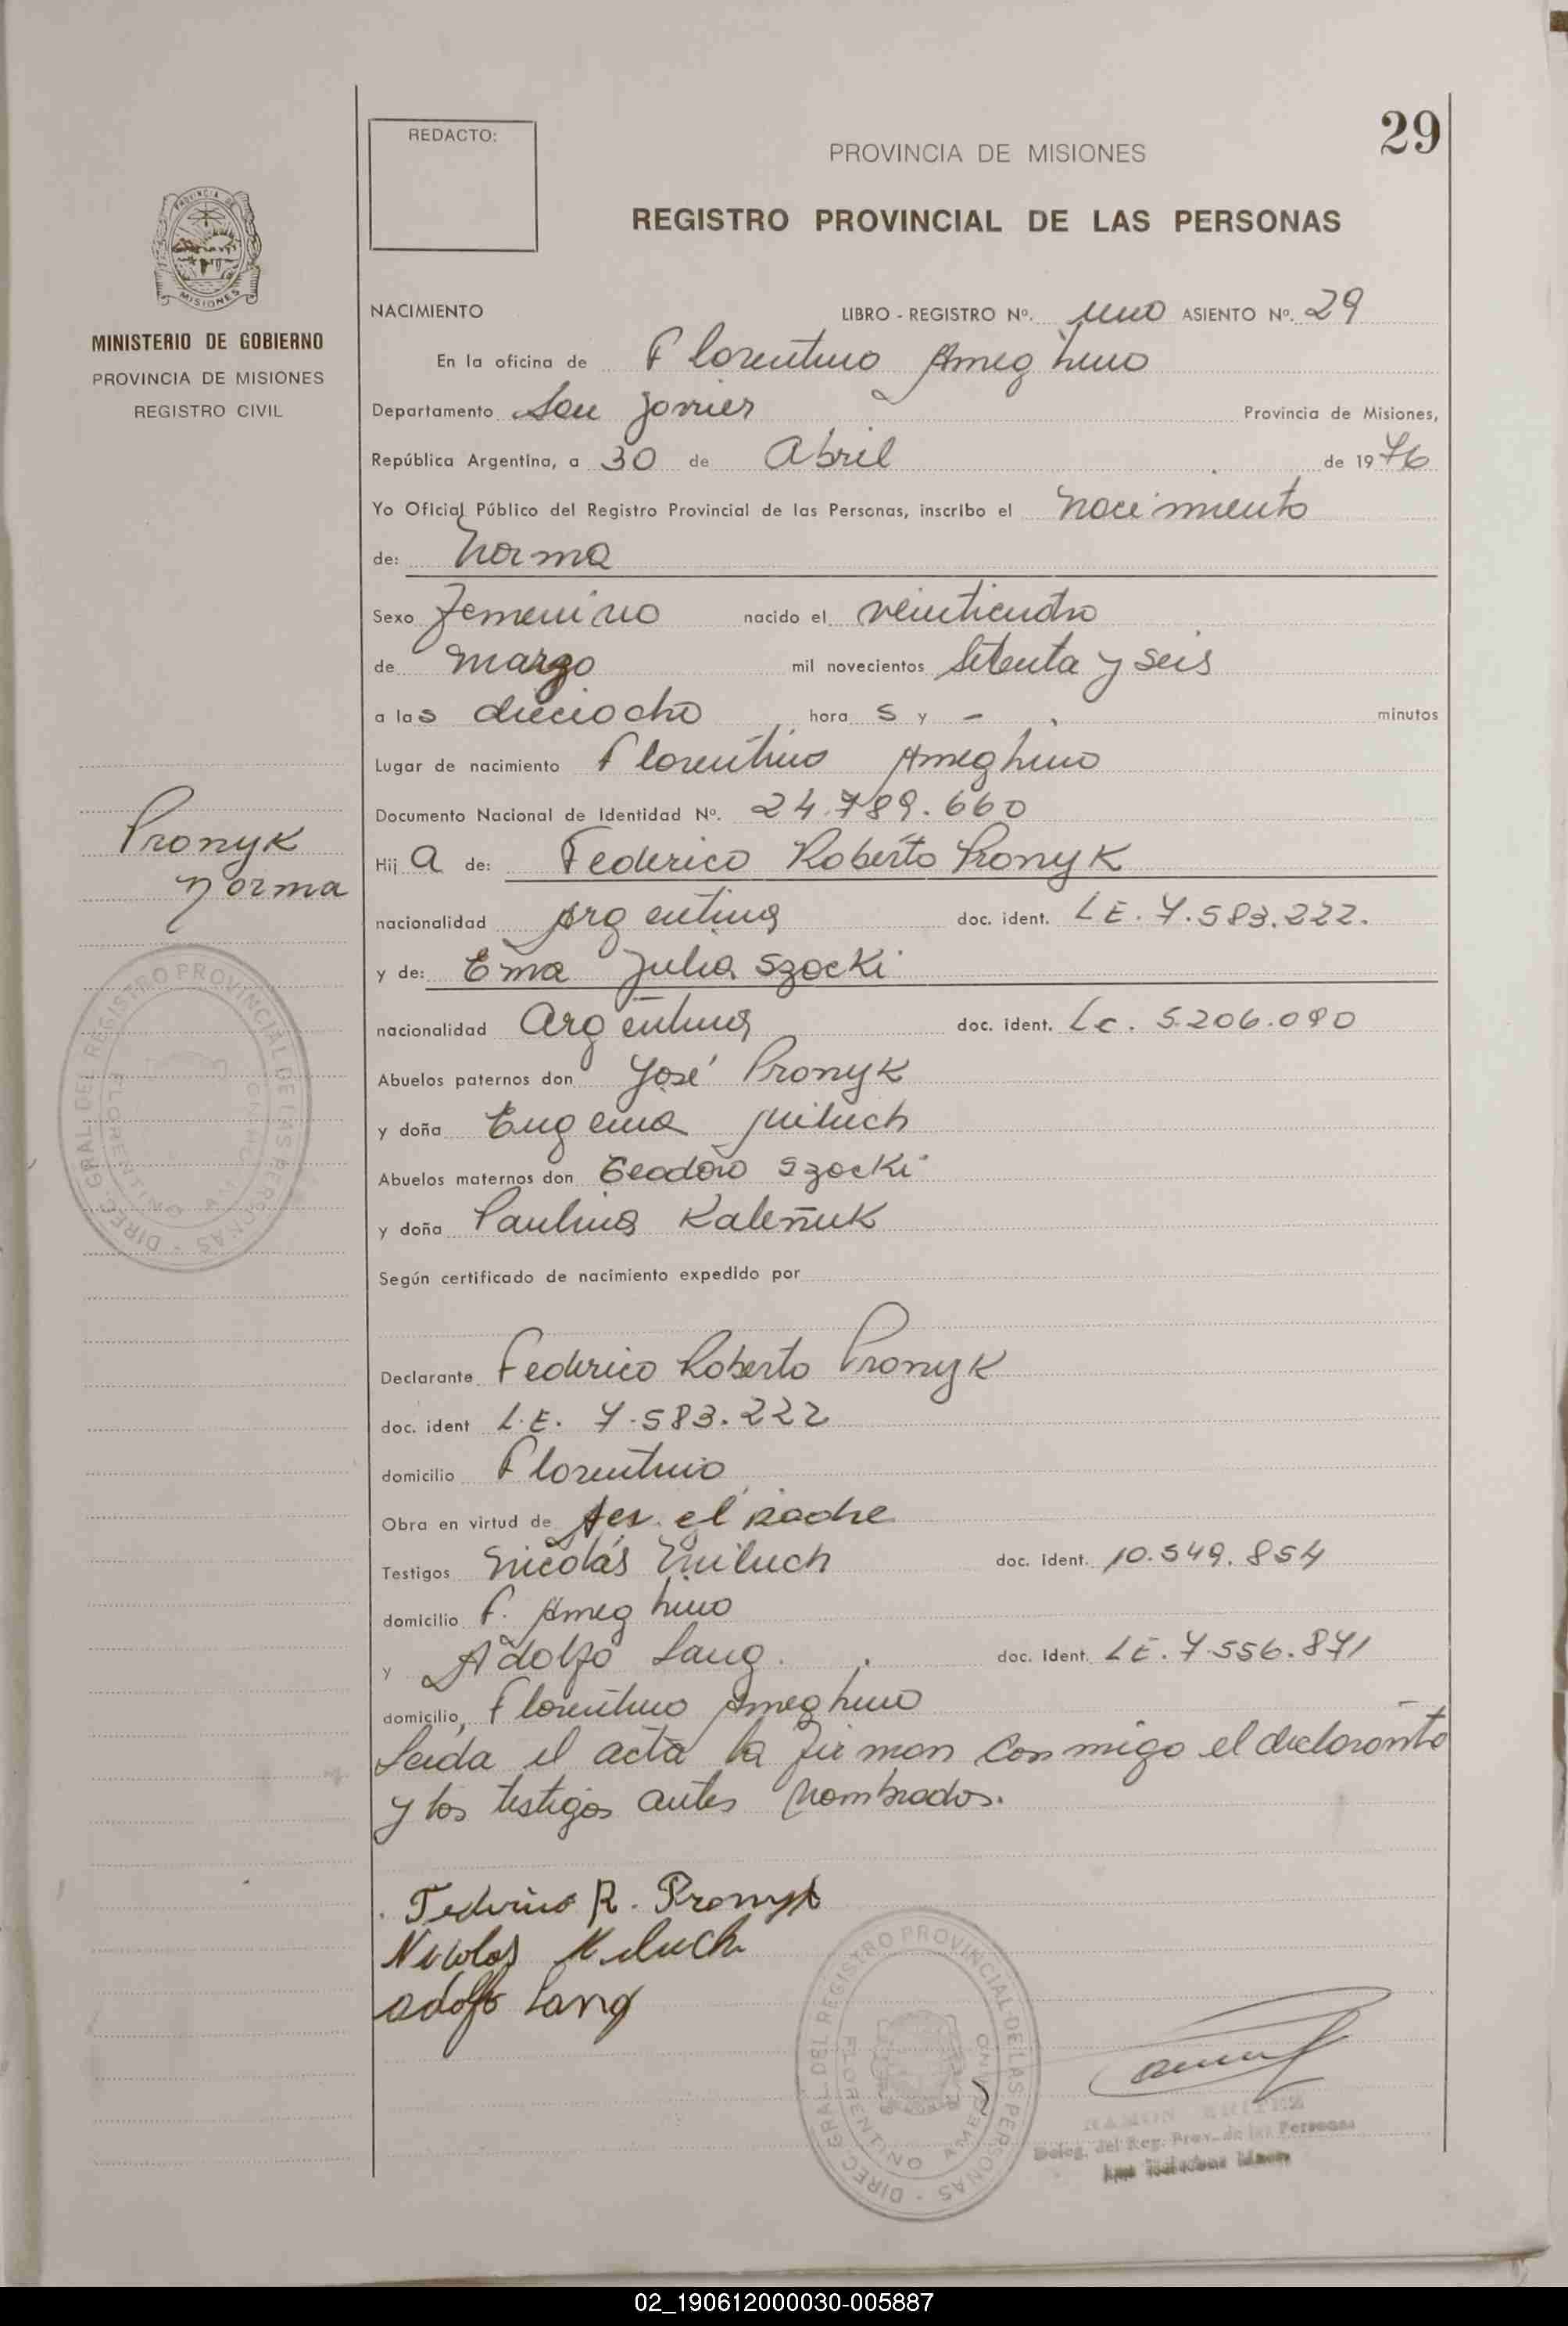 REDACTO:
29
PROVINCIA DE MISIONES
REGISTRO PROVINCIAL DE LAS PERSONAS
PROVINCIA DE
MISIONES
MINISTERIO DE GOBIERNO
PROVINCIA DE MISIONES
REGISTRO CIVIL
NACIMIENTO LIBRO - REGISTRO Nº. uno ASIENTO Nº. 29
En la oficina de Florentino Ameghino
Departamento San Javier Provincia de Misiones,
República Argentina, a 30 de Abril de 1976
Yo Oficial Público del Registro Provincial de las Personas, inscribo el nacimiento
de: Norma
Sexo Femenino nacido el veinticuatro
de marzo mil novecientos setenta y seis
a las dieciocho hora s y - minutos
Lugar de nacimiento Florentino Ameghino
Documento Nacional de Identidad Nº. 24.789.660
Pronyk
Norma
Hij a de: Federico Roberto Pronyk
nacionalidad Argentina doc. ident. LE. 7.583.222.
y de: Ema Julia Szocki
nacionalidad Argentina doc. ident. Lc. 5.206.090
Abuelos paternos don José Pronyk
y doña Eugenia Miluch
Abuelos maternos don Teodoro Szocki
y doña Paulina Kaleñuk
Según certificado de nacimiento expedido por
Declarante Federico Roberto Pronyk
doc. ident L.E. 7.583.222
domicilio Florentino
Obra en virtud de ser el padre
Testigos Nicolás Miluch doc. Ident. 10.549.854
domicilio F. Ameghino
y Adolfo Lang. doc. Ident. LE. 7.556.871
domicilio, Florentino Ameghino
Leida el acta la firman conmigo el declarante
y los testigos antes nombrados.
Federico R. Pronyk
Nicolas Miluch
Adolfo Lang
DIREC. GRAL. DEL REGISTRO PROVINCIAL DE LAS PERSONAS
FLORENTINO AMEGHINO
DIREC. GRAL. DEL REGISTRO PROVINCIAL DE LAS PERSONAS
FLORENTINO AMEGHINO
RAMON
Deleg. del Reg. Prov. de las Personas
02_190612000030-005887